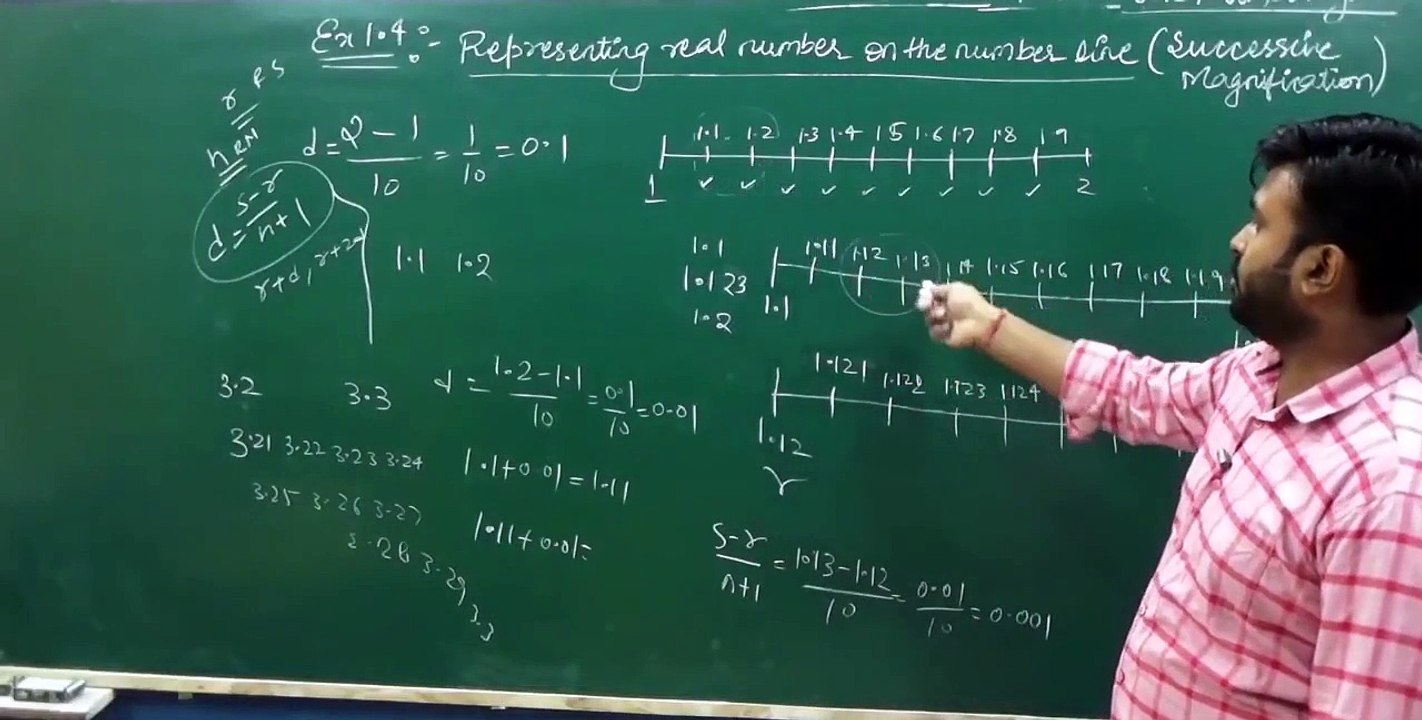 Ex 1.4 :- Representing real number on the number line (Successive Magnification)
r & s
n RN
d = s-r / n+1
r+d, r+2d
d = 2 - 1 / 10 = 1/10 = 0.1
1.1 1.2
1.1 1.2 1.3 1.4 1.5 1.6 1.7 1.8 1.9
1 2
1.1
1.123
1.2
1.11 1.12 1.13 1.14 1.15 1.16 1.17 1.18 1.19
1.1
3.2 3.3
3.21 3.22 3.23 3.24
3.25 3.26 3.27
3.28 3.29
3.3
d = 1.2-1.1 / 10 = 0.1/10 = 0.01
1.1+0.01=1.11
1.11+0.01=
1.121 1.122 1.123 1.124
1.12
r
s-r / n+1 = 1.13-1.12 / 10 = 0.01/10 = 0.001